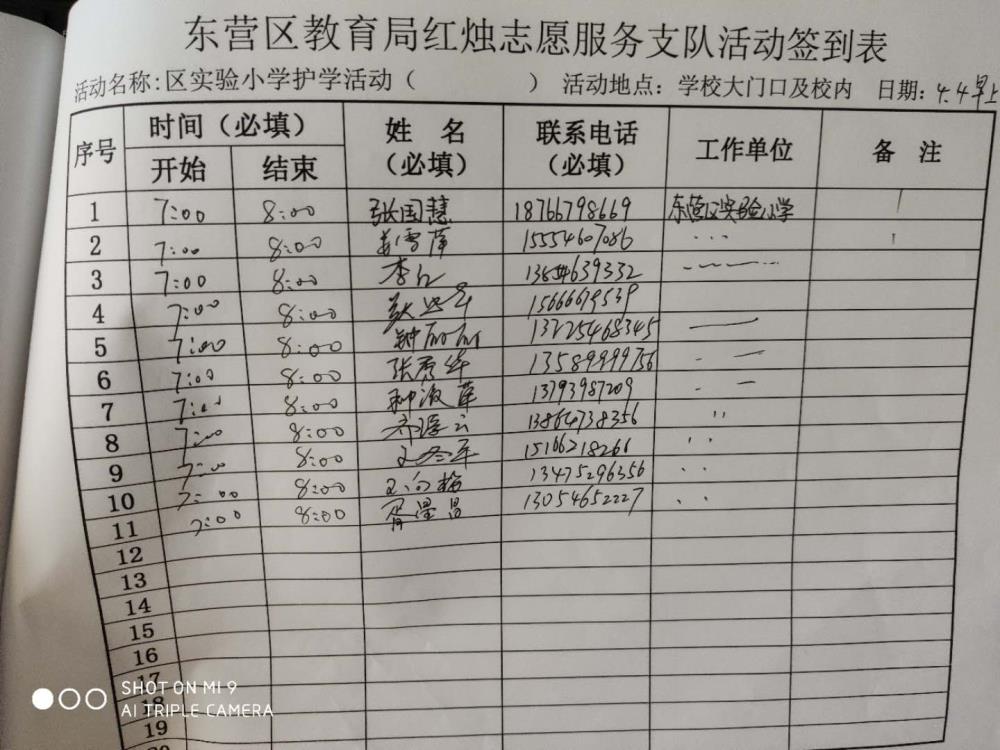 东营区教育局红烛志愿服务支队活动签到表
活动名称:区实验小学护学活动（ ） 活动地点：学校大门口及校内 日期：4.4早上
序号 时间（必填） 姓名（必填） 联系电话（必填） 工作单位 备注
开始 结束
1 7:00 8:00 张国慧 18766798669 东营区实验小学
2 7:00 8:00 姜雪萍 15554607086
3 7:00 8:00 李 639332
4 7:00 8:00
5 7:00 8:00 钟丽丽 13225468345
6 7:00 8:00 张秀华 13589999756
7 7:00 8:00 种淑萍 13793987209
8 7:00 8:00 13864738356
9 7:00 8:00 15166218266
10 7:00 8:00 13475296356
11 7:00 8:00 13054652227
12
13
14
15
16
17
18
19
20
SHOT ON MI 9
AI TRIPLE CAMERA